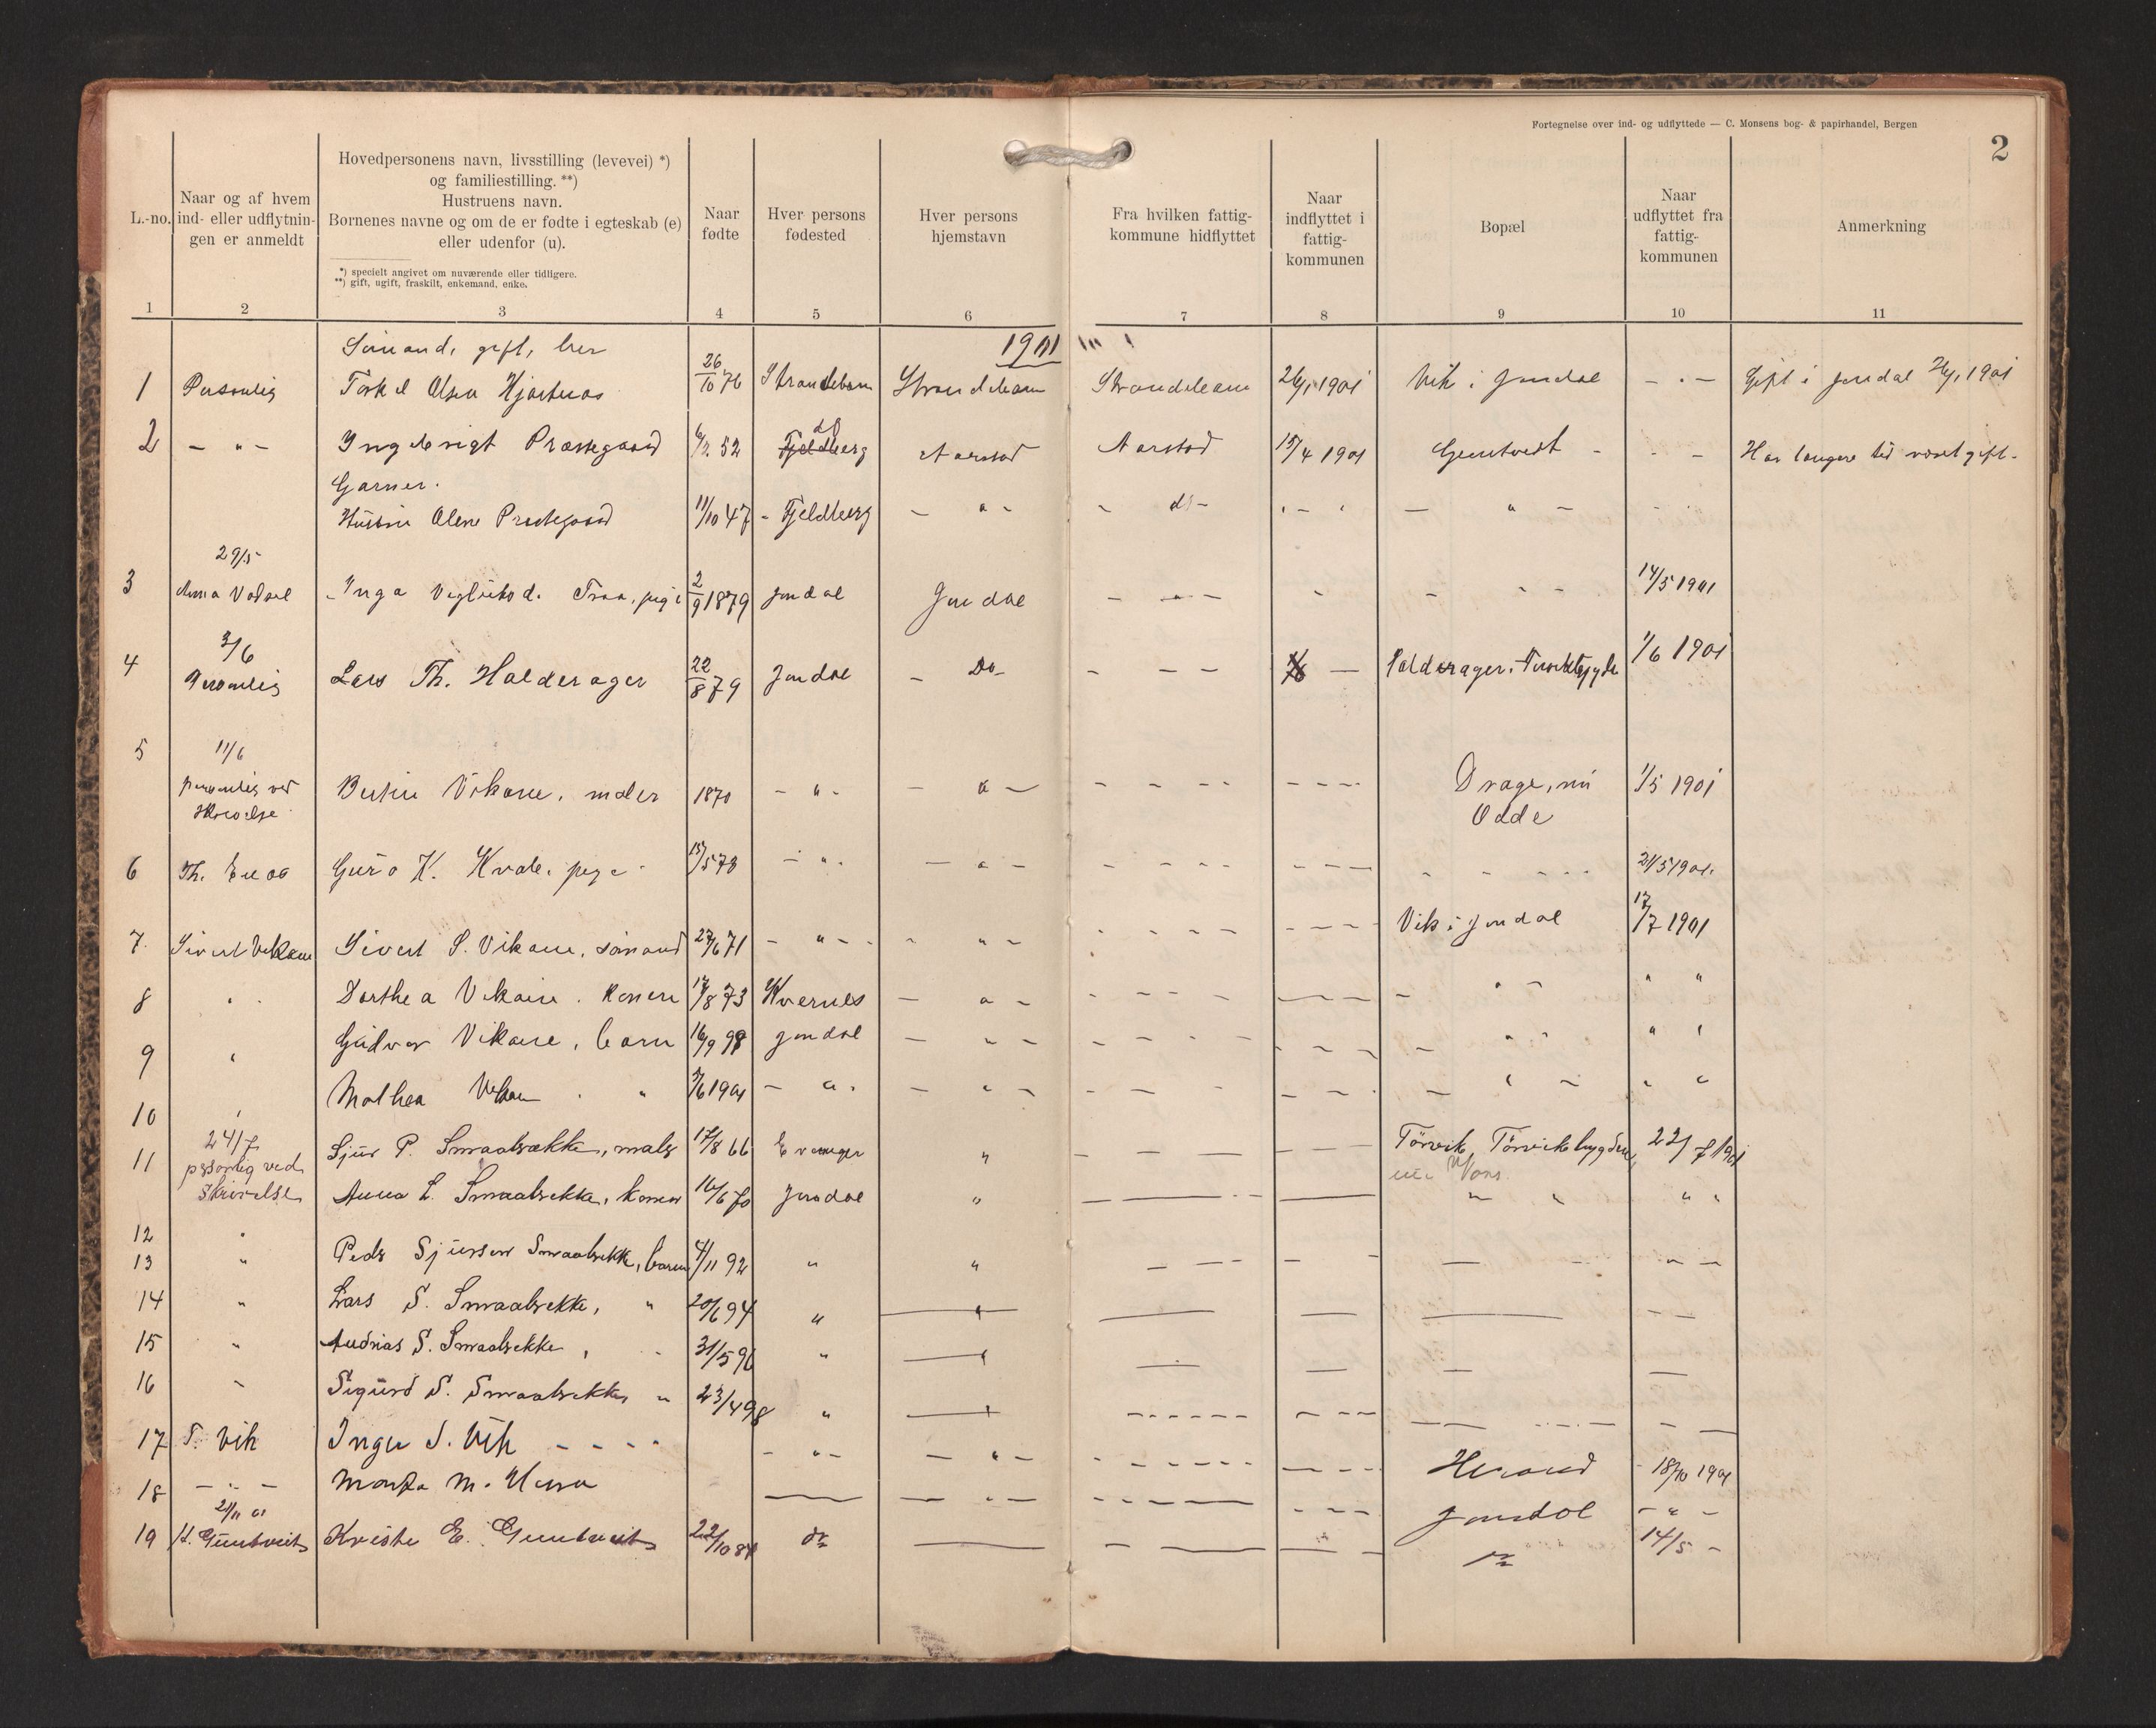 Fortegnelse over ind- og udflyttede — C. Monsens bog- & papirhandel, Bergen
2
L.-no.
Naar og af hvem
ind- eller udflytnin-
gen er anmeldt
Hovedpersonens navn, livsstilling (levevei) *)
og familiestilling. **)
Hustruens navn.
Børnenes navne og om de er fødte i egteskab (e)
eller udenfor (u).
*) specielt angivet om nuværende eller tidligere.
**) gift, ugift, fraskilt, enkemand, enke.
Naar
fødte
Hver persons
fødested
Hver persons
hjemstavn
Fra hvilken fattig-
kommune hidflyttet
Naar
indflyttet i
fattig-
kommunen
Bopæl
Naar
udflyttet fra
fattig-
kommunen
Anmerkning
1 2 3 4 5 6 7 8 9 10 11
1901
Sømand, gift, her
1 Personlig Torkel Olsen 26/10 76 Strandebarm Strandebarm Strandebarm 26/1 1901 Vik i Jondal - " - Gift i Jondal 26/1 1901
2 - " - Ingebrigt Præstegaard 6/3 52 Fjeldberg do Aarstad Aarstad 15/4 1901 - - - Har længere tid været gift.
Garner.
Hustru Olene Prestegaard 11/10 47 - Fjeldberg - " - - do - " - " -
29/5
3 Anna Inga pige 2/9 1879 Jondal Jondal - " - 14/5 1901
3/6
4 Personlig Lars Th. Halderager 22/8 79 Jondal - Do - - - - Halderager, 1/6 1901
5 11/6
personlig ved Vikane, maler 1870 - " - - " - - - - - - - - Drage, nu 1/5 1901
Skrivelse Odde
6 Th. Guro K. Kvale, pige 15/5 78 - " - - " - - - - - - - - 21/5 1901.
7. Sivert Vikane Sivert S. Vikane, sømand 27/6 71 - " - " - - - - - Vik i Jondal 17/7 1901
8 " Dorthea Vikane. Konen 17/8 73 Kvernes - " - - - - - " - " "
9 " Gudver Vikane, barn 16/9 98 Jondal - " - - - - - " " "
10 " Mathea Vikane " 3/6 1901 - " - - " - - - - - " - " "
24/7
11 personlig ved Sjur P. Smaabrekke, maler 17/8 66 " - - - Tørvik, Tørvikbygden, 22/7 1901
nu Voss.
Skrivelse Anna L. Smaabrekke, konen 16/6 70 Jondal " " " " "
12 "
13 " Peder Sjursen Smaabrekke, barn 4/11 92 " " - - - - " -
14 " Lars S. Smaabrekke, " 20/6 94 " " - - -
15 " Andrias S. Smaabrekke, " 31/5 96 " " - - -
16 " Sigurd S. Smaabrekke " 23/4 98 " " - - - - -
17 S. Vik S. Vik - - - - - " - - " - - - - - Herand 18/10 1901
18 - " - M. - " - - - - Jondal - " -
21/11 01
19 Kristi E. 22/10 84 do - - do 14/5 -